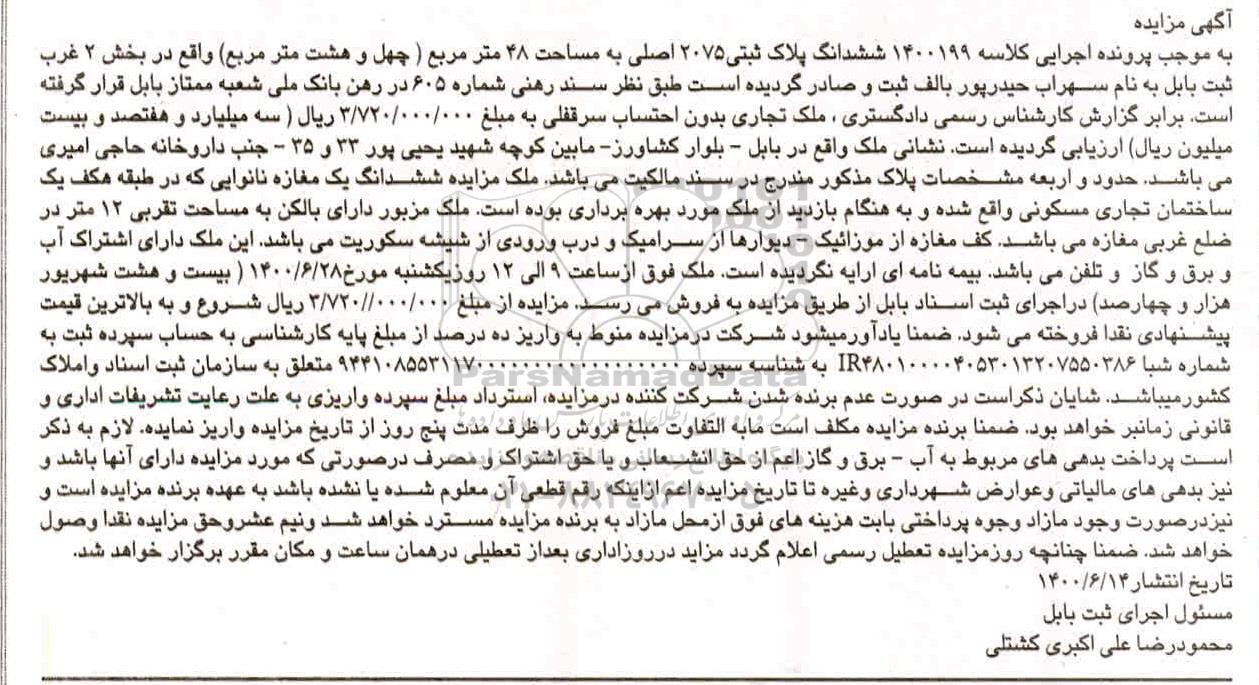 آگهی مزایده
به موجب پرونده اجرایی کلاسه ۱۴۰۰۱۹۹ ششدانگ پلاک ثبتی۲۰۷۵ اصلی به مساحت ۴۸ متر مربع ( چهل و هشت متر مربع) واقع در بخش ۲ غرب
ثبت بابل به نام سهراب حیدرپور بالف ثبت و صادر گردیده است طبق نظر سند رهنی شماره ۶۰۵ در رهن بانک ملی شعبه ممتاز بابل قرار گرفته
است. برابر گزارش کارشناس رسمی دادگستری ، ملک تجاری بدون احتساب سرقفلی به مبلغ ۳/۷۲۰/۰۰۰/۰۰۰ ریال ( سه میلیارد و هفتصد و بیست
میلیون ریال) ارزیابی گردیده است. نشانی ملک واقع در بابل – بلوار کشاورز– مابین کوچه شهید یحیی پور ۳۳ و ۳۵ – جنب داروخانه حاجی امیری
می باشد. حدود و اربعه مشخصات پلاک مذکور مندرج در سند مالکیت می باشد. ملک مزایده ششدانگ یک مغازه نانوایی که در طبقه هکف یک
ساختمان تجاری مسکونی واقع شده و به هنگام بازدید از ملک مورد بهره برداری بوده است. ملک مزبور دارای بالکن به مساحت تقربی ۱۲ متر در
ضلع غربی مغازه می باشد. کف مغازه از موزائیک – دیوارها از سرامیک و درب ورودی از شیشه سکوریت می باشد. این ملک دارای اشتراک آب
و برق و گاز و تلفن می باشد. بیمه نامه ای ارایه نگردیده است. ملک فوق ازساعت ۹ الی ۱۲ روزیکشنبه مورخ۱۴۰۰/۶/۲۸ ( بیست و هشت شهریور
هزار و چهارصد) دراجرای ثبت اسناد بابل از طریق مزایده به فروش می رسد. مزایده از مبلغ ۳/۷۲۰//۰۰۰/۰۰۰ ریال شروع و به بالاترین قیمت
پیشنهادی نقدا فروخته می شود. ضمنا یادآورمیشود شرکت درمزایده منوط به واریز ده درصد از مبلغ پایه کارشناسی به حساب سپرده ثبت به
شماره شبا IR۴۸۰۱۰۰۰۰۴۰۵۳۰۱۳۲۰۷۵۵۰۳۸۶ به شناسه سپرده متعلق به سازمان ثبت اسناد واملاک
کشورمیباشد. شایان ذکراست در صورت عدم برنده شدن شرکت کننده درمزایده، استرداد مبلغ سپرده واریزی به علت رعایت تشریفات اداری و
قانونی زمانبر خواهد بود. ضمنا برنده مزایده مکلف است مابه التفاوت مبلغ فروش را ظرف مدت پنج روز از تاریخ مزایده واریز نمایده. لازم به ذکر
است پرداخت بدهی های مربوط به آب – برق و گاز اعم از حق انشعاب و یا حق اشتراک و مصرف درصورتی که مورد مزایده دارای آنها باشد و
نیز بدهی های مالیاتی وعوارض شهرداری وغیره تا تاریخ مزایده اعم ازاینکه رقم قطعی آن معلوم شده یا نشده باشد به عهده برنده مزایده است و
نیزدرصورت وجود مازاد وجوه پرداختی بابت هزینه های فوق ازمحل مازاد به برنده مزایده مسترد خواهد شد ونیم عشروحق مزایده نقدا وصول
خواهد شد. ضمنا چنانچه روزمزایده تعطیل رسمی اعلام گردد مزاید درروزاداری بعداز تعطیلی درهمان ساعت و مکان مقرر برگزار خواهد شد.
تاریخ انتشار۱۴۰۰/۶/۱۴
مسئول اجرای ثبت بابل
محمودرضا علی اکبری کشتلی
ParsNamadData